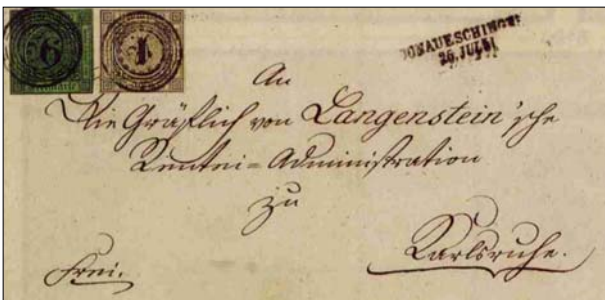 6 1
DONAUESCHINGEN
26. JUL 51
An
Die Gräflich von Langenstein'sche
Rentei-Administration
zu
Karlsruhe.
frei.